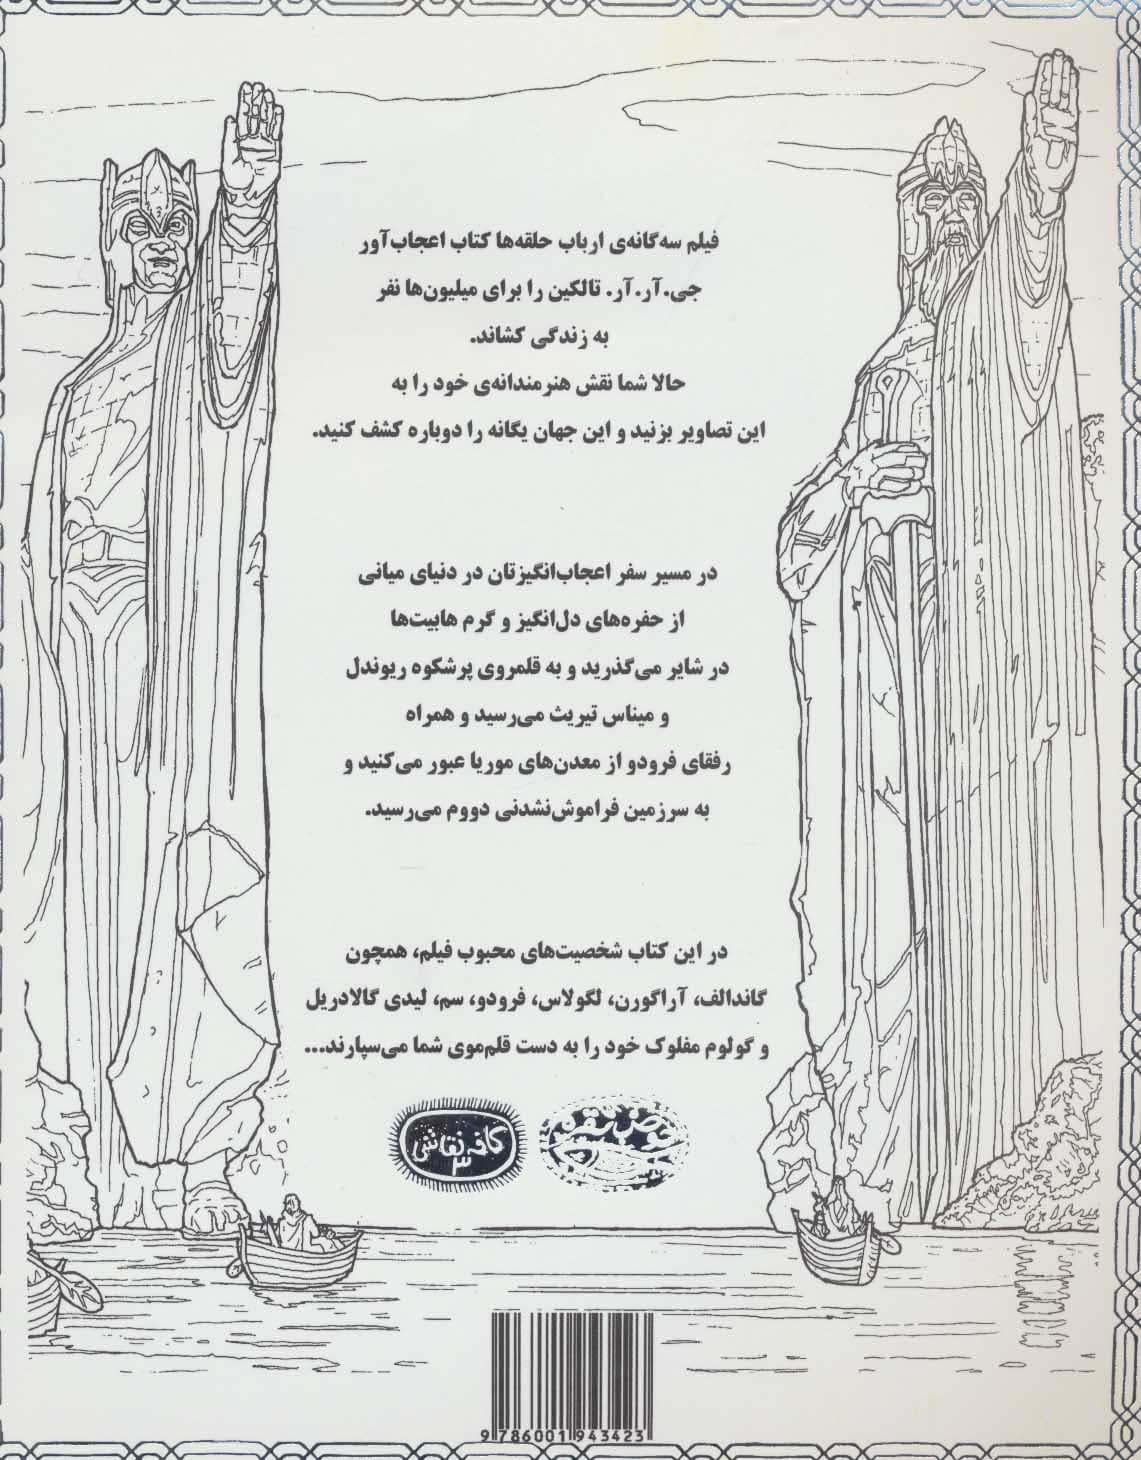 فیلم سه‌گانه‌ی ارباب حلقه‌ها کتاب اعجاب‌آور
جی.آر.آر. تالکین را برای میلیون‌ها نفر
به زندگی کشاند.
حالا شما نقش هنرمندانه‌ی خود را به
این تصاویر بزنید و این جهان یگانه را دوباره کشف کنید.
در مسیر سفر اعجاب‌انگیزتان در دنیای میانی
از حفره‌های دل‌انگیز و گرم هابیت‌ها
در شایر می‌گذرید و به قلمروی پرشکوه ریوندل
و میناس تیریث می‌رسید و همراه
رفقای فرودو از معدن‌های موریا عبور می‌کنید و
به سرزمین فراموش‌نشدنی دووم می‌رسید.
در این کتاب شخصیت‌های محبوب فیلم، همچون
گاندالف، آراگورن، لگولاس، فرودو، سم، لیدی گالادریل
و گولوم مفلوک خود را به دست قلم‌موی شما می‌سپارند...
حوض نقره
کافه نقاشی
۳
9786001943423